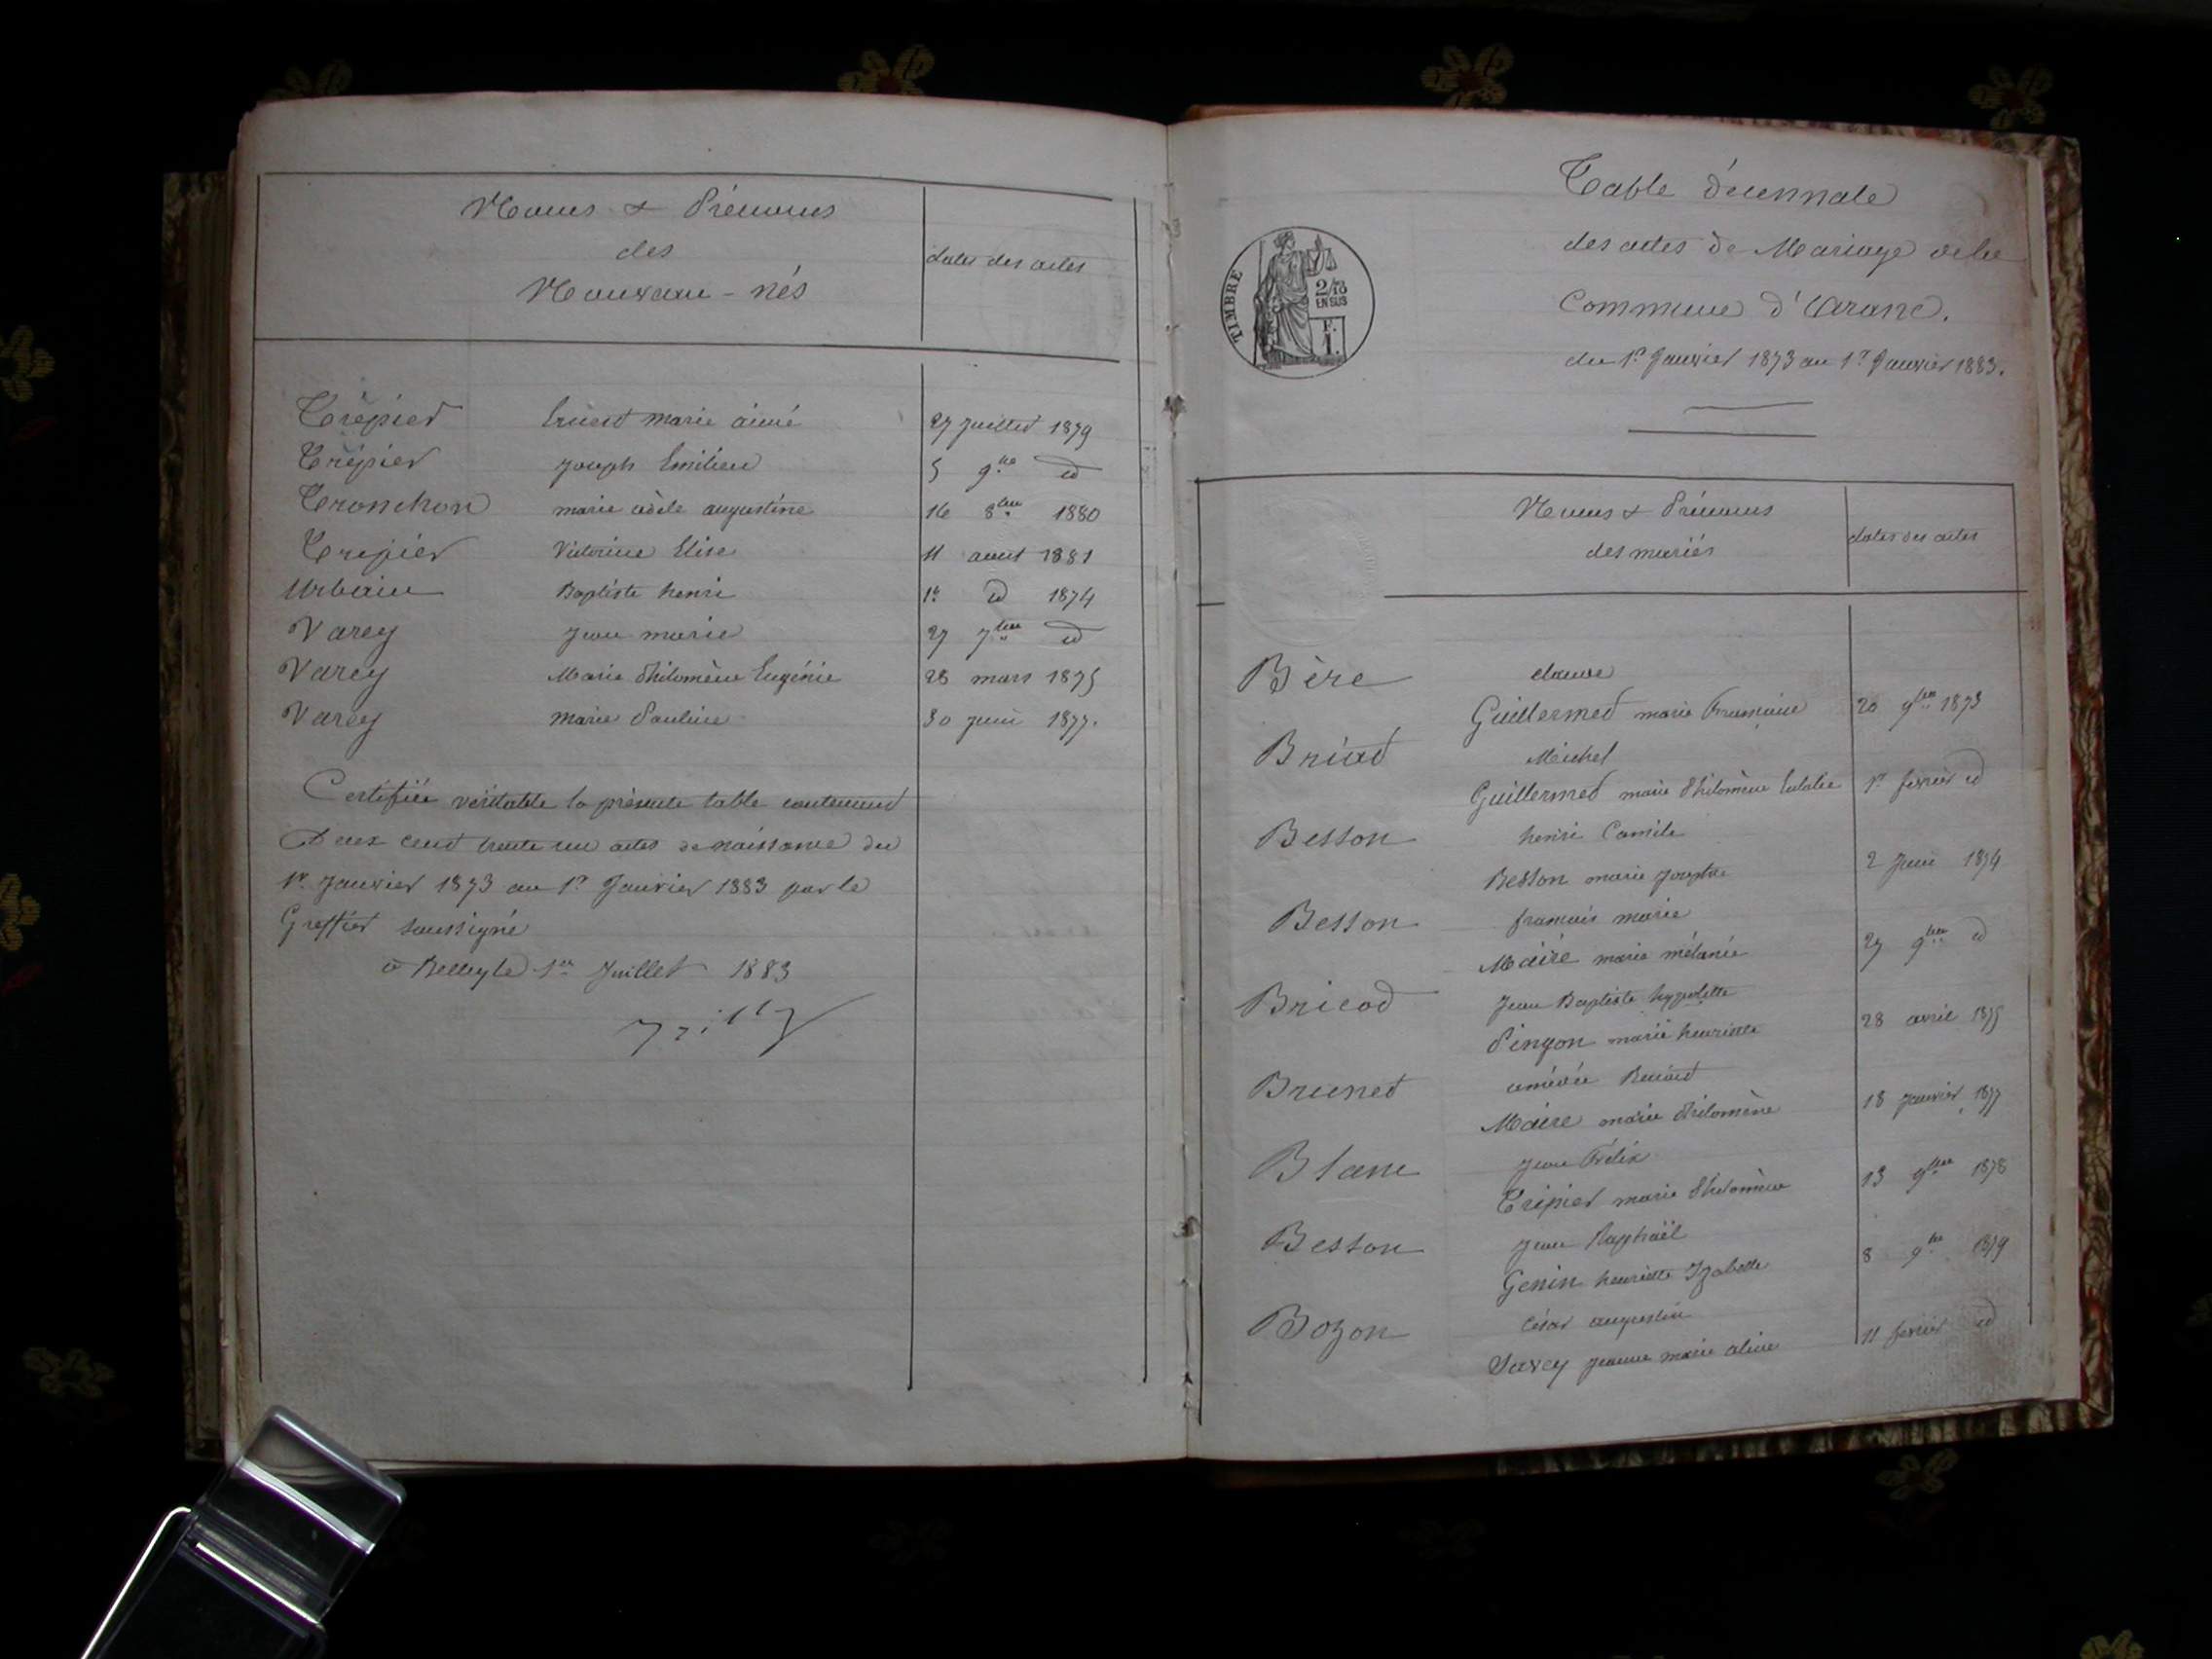 Noms & Prénoms
des
Nouveau-nés
dates des actes
Trépier Ernest marie aimé 27 juillet 1879
Trépier joseph Emilien 5 9bre id
Tronchon marie adèle augustine 16 8bre 1880
Trepier Victorine Elise 11 aout 1881
Urbain Baptiste henri 1er id 1874
Varey jean marie 27 7bre id
Varey Marie Philomène Eugénie 28 mars 1875
Varey marie Pauline 30 juin 1877.
Certifiée véritable la présente table contenant
Deux cent trente un actes de naissance du
1er Janvier 1873 au 1er Janvier 1883 par le
Greffier soussigné
à Belley le 1er Juillet 1883
Table décennale
des actes de Mariage de la
Commune d'Aranc.
du 1er Janvier 1873 au 1er Janvier 1883.
TIMBRE
2/10
EN SUS
F.
1.
Noms & Prénoms
des mariés
dates des actes
Bère
Guillermet marie 20 9bre 1873
Briad Michel
Guillermet marie Philomène Eulalie 1er février id
Besson henri Camile
Besson marie josephe 2 Juin 1874
Besson françois marie
Maire marie mélanie 27 9bre id
Bricod Jean Baptiste hypolitte
Pingon marie henriette 28 avril 1875
Brunet amédée
Maire marie Philomène 18 janvier 1877
Blanc jean Félix
Trépier marie Philomène 13 9bre 1878
Besson jean Raphaël
Genin henriette Izabelle 8 9bre 1879
Bozon César augustin
Savey jeanne marie aline 11 février id